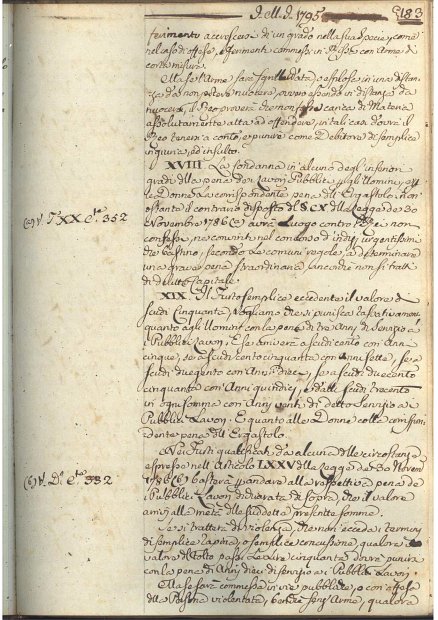 J. M. J. 1795. 183
ferimento accrescasi di un grado nella sua specie, come
nel caso di offese, e ferimenti commessi in Rissa con Arme di
corta misura
Ma se l'Arme fosse spillata, o esplosa in una distan
za da non potere nuocere, ovvero essendo in distanza da
nuocere, il Reo provera che non fosse carica di Materia
assolutamente atta ad offendere, in tali casi dovrà il
Reo tenersi a conto, e punire come Debitore di semplice
ingiuria, ed insulto.
XVIII. La condanna in alcuno degl'inferiori
gradi della pena dei Lavori Pubblici per gli Uomini, e per
le Donne la corrispondente pena dell'Ergastolo, non
ostante il contrario disposto del § CX della Legge de 30
(a) V. T. XX C. 352
Novembre 1786 (a) avrà luogo contro i Rei non
confessi, ne convinti nel concorso di indizj urgentissimi
da bastare, secondo le comuni regole, a determinare
una grave pena straordinaria, ancorchè non si tratti
di delitto Capitale.
XIX. Il Furto semplice eccedente il valore di
Scudi Cinquanta Vogliamo che si punisca tassativamente
quanto agli Uomini con la pena di tre Anni di Servizio ai
Pubblici Lavori, E se arriverà a Scudi cento con Anni
cinque, se a Scudi cento cinquanta con Anni sette, se a
Scudi duegento con Anni dieci, se a Scudi duecento
cinquanta con Anni quindici, e dalli Scudi trecento
in ogni somma con Anni venti di detto Servizio ai
Pubblici Lavori. E quanto alle Donne colla corrispon
dente pena dell'Ergastolo
Nei Furti qualificati da alcuna delle circostanze
espresse nell'Articolo LXXV della Legge de 30 Novem
(b) V. D. C. 332
1786 (b) basterà per andare alla respettiva pena de
Pubblici Lavori dichiarata di sopra, che il valore
arrivi alla metà delle suddette prescritte somme.
Se si tratterà di Violenza, che non ecceda i termini
di semplice rapina, o semplice concussione, qualora il
valore del tolto passi le Lire cinquanta dovrà punirsi
con la pena di Anni dieci di servizio ai Pubblici Lavori.
Ma se sarà commessa in vie pubbliche, o con offesa
delle Persone violentate, benchè senz'Arme, qualora